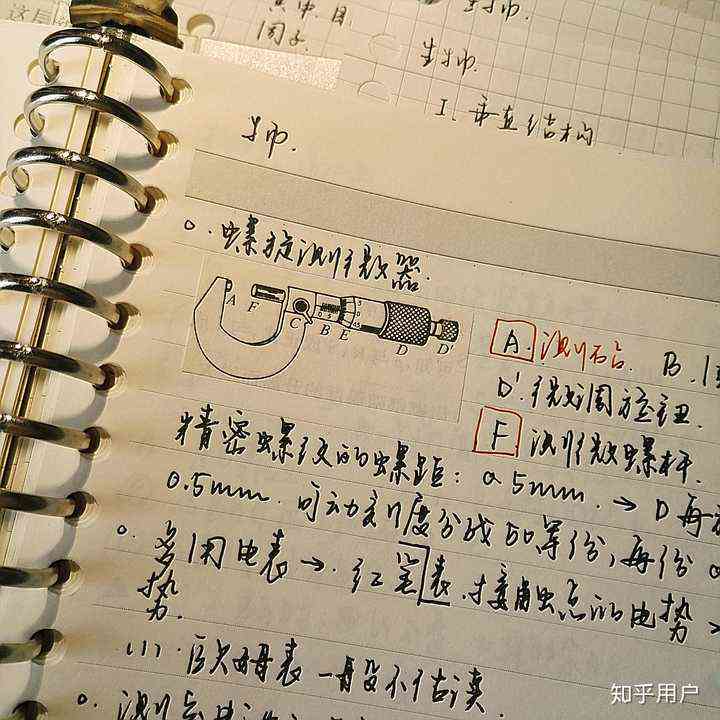 生物.
生物.
I. 垂直结构
物.
o. 螺旋测微器.
A F C B E D D'
0 5
5 0 45
A. 测砧. B.
D'. 微调旋钮.
F 测微螺杆.
精密螺纹的螺距: 0.5mm. → D 再
0.5mm. 可动刻度分成50等份, 每份
o. 多用电表 → 红笔表. 接触点的电势
势.
(1). 欧姆表一般不估读.
o. 测
知乎用户